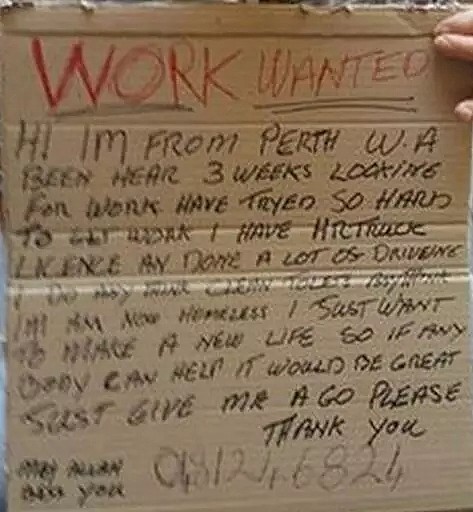 WORK WANTED
HI IM FROM PERTH W.A
BEEN HEAR 3 WEEKS LOOKING
FOR WORK HAVE TRYED SO HARD
TO GET WORK I HAVE HRTRUCK
LICENCE AN DONE A LOT OF DRIVEING
I DO ANY THINK CLEAN TOLETS ANYTHINK
IM AM NOW HOMELESS I JUST WANT
TO MAKE A NEW LIFE SO IF ANY
BODY CAN HELP IT WOULD BE GREAT
JUST GIVE ME A GO PLEASE
THANK YOU
MAY ALLAH
BLESS YOU